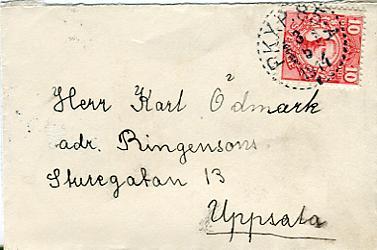 10 10
Herr Karl Ödmark
adr. Ringensons
Sturegatan 13
Uppsala